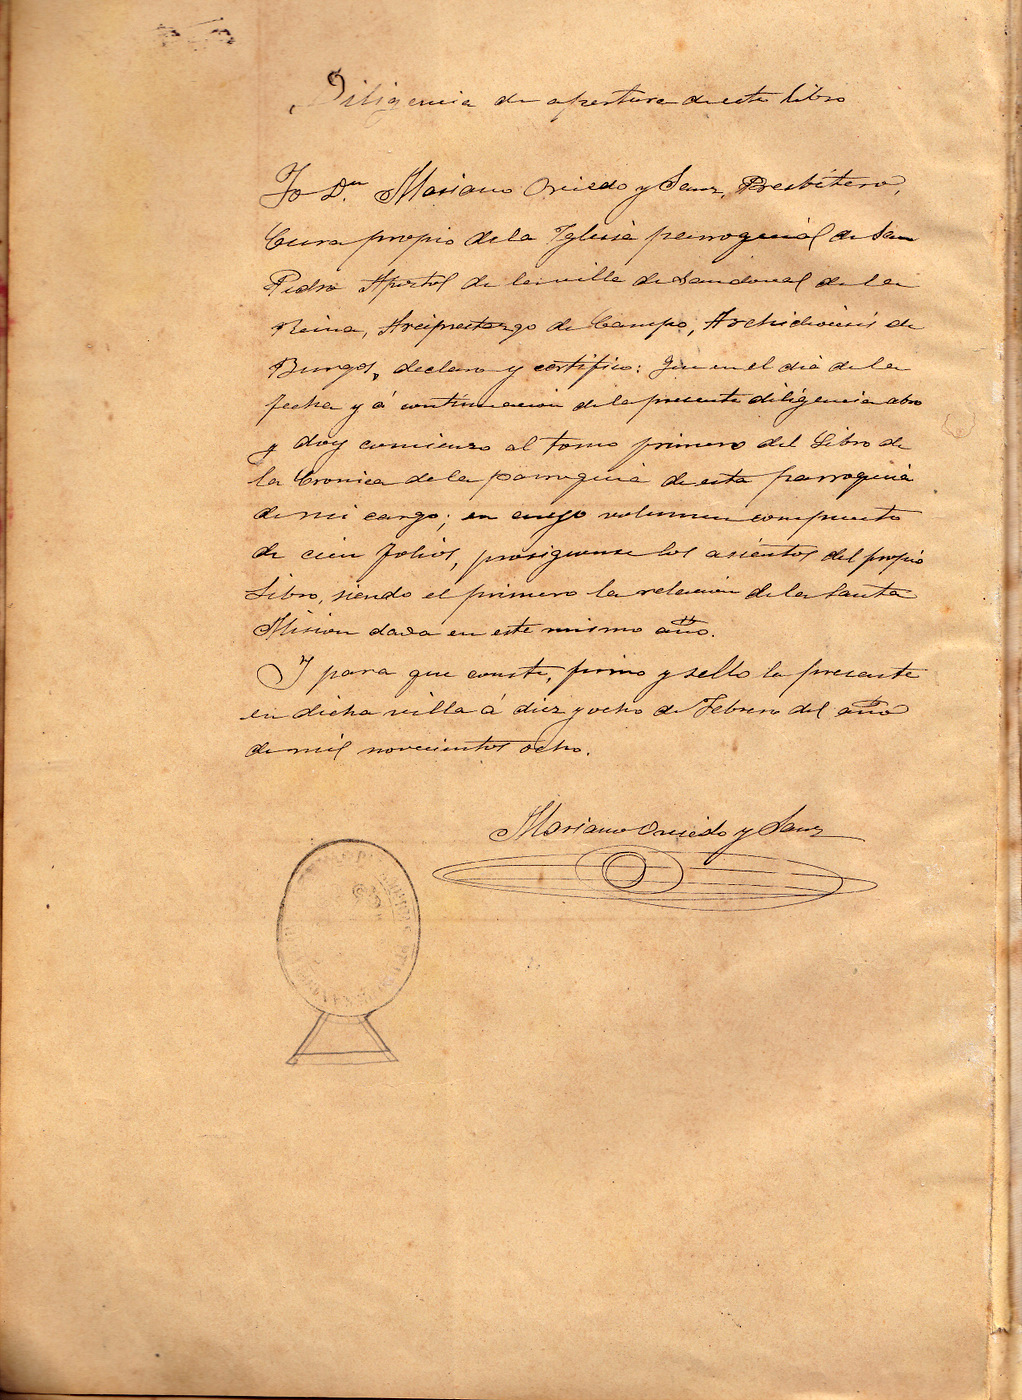 Diligencia de apertura de este libro
Yo Dn. Mariano Oviedo y Sanz, Presbítero,
Cura propio de la Iglesia parroquial de San
Pedro Apostol de la villa de Sandoval de la
Reina, Arciprestazgo de Campo, Archidiócesis de
Burgos, declaro y certifico: Que en el dia de la
fecha y á continuacion de la presente diligencia abro
y doy comienzo al tomo primero del Libro de
la Cronica de la parroquia de esta parroquia
de mi cargo; en cuyo volumen compuesto
de cien folios, prosiguense los asientos del propio
Libro, siendo el primero la relacion de la Santa
Mision dada en este mismo año.
Y para que conste, firmo y sello la presente
en dicha villa á diez y ocho de Febrero del año
de mil novecientos ocho.
Mariano Oviedo y Sanz